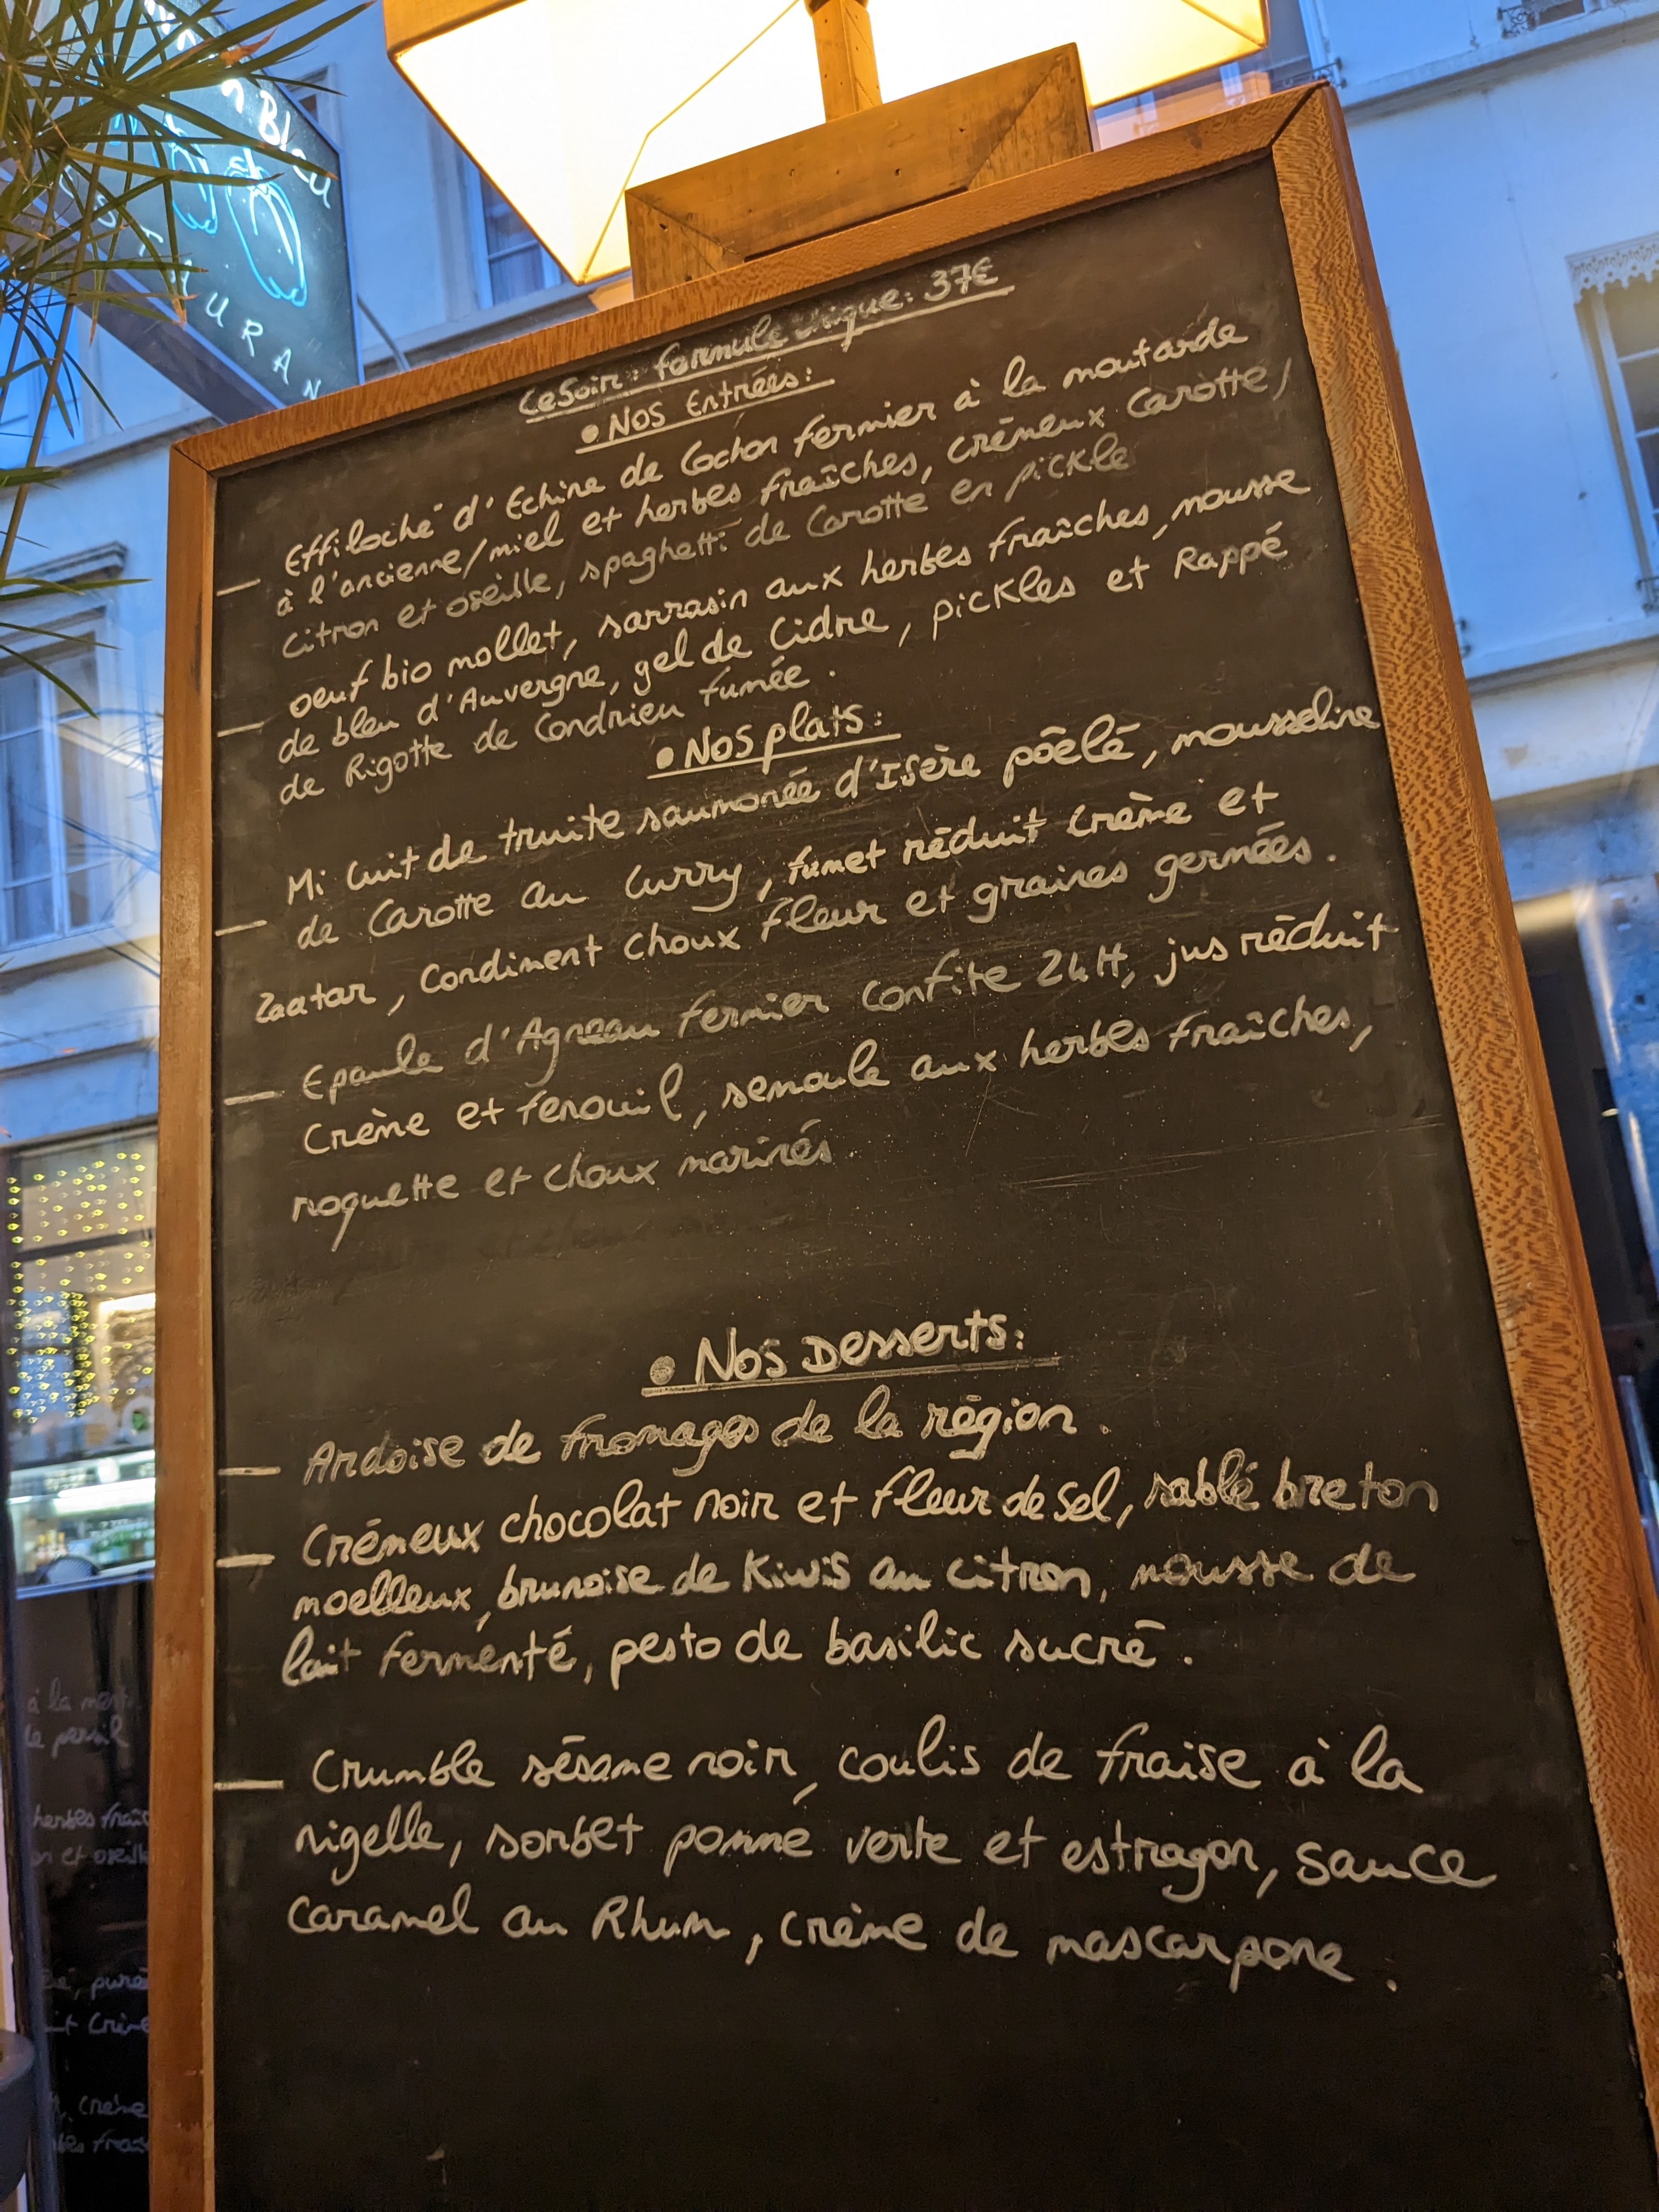 Bleu
URAN
Ce Soir : formule unique : 37€
• Nos Entrées :
— Effiloché d'Echine de Cochon fermier à la moutarde
à l'ancienne/miel et herbes fraîches, crémeux Carotte/
Citron et oseille, spaghetti de Carotte en pickle
— oeuf bio mollet, sarrasin aux herbes fraîches, mousse
de bleu d'Auvergne, gel de Cidre, pickles et Rappé
de Rigotte de Condrieu fumée.
• Nos plats :
— Mi Cuit de truite saumonée d'Isère pôelé, mousseline
de Carotte au Curry, fumet réduit Crème et
Zaatar, Condiment choux fleur et graines germées.
— Epaule d'Agneau fermier Confite 24H, jus réduit
Crème et fenouil, semoule aux herbes fraîches,
roquette et choux marinés.
• Nos Desserts :
— Ardoise de fromages de la région.
— Crémeux chocolat noir et fleur de Sel, sablé breton
moelleux, brunoise de Kiwis au citron, mousse de
lait fermenté, pesto de basilic sucré.
— Crumble sésame noir, coulis de fraise à la
nigelle, sorbet pomme verte et estragon, sauce
Caramel au Rhum, crème de mascarpone.
à la
le persil
herbes
et oseille